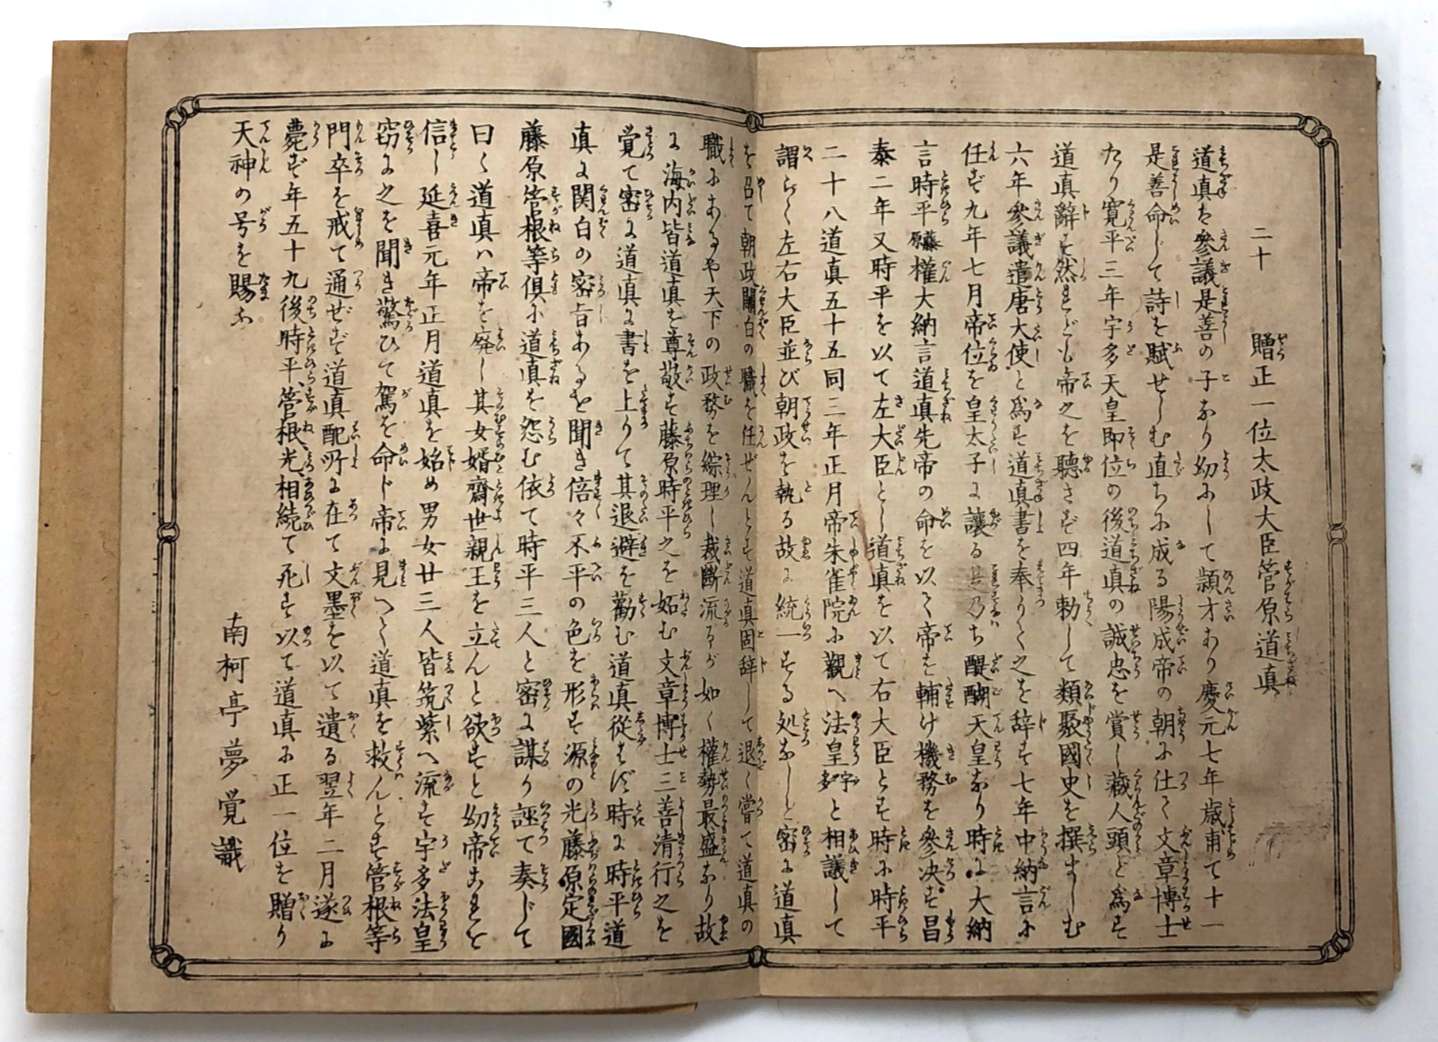 二十　贈正一位太政大臣菅原道真
道真を参議是善の子なり幼にして頴才あり慶元七年歳甫て十一
是善命じて詩を賦せしむ直ちに成る陽成帝の朝に仕へ文章博士
たり寛平三年宇多天皇即位の後道真の誠忠を賞し蔵人頭と為す
道真辭す然れども帝之を聴さず四年勅して類聚國史を撰ましむ
六年参議遣唐大使と為す道真書を奉りて之を辞す七年中納言に
任ず九年七月帝位を皇太子に譲る是乃ち醍醐天皇なり時に大納
言時平藤原權大納言道真先帝の命を以て帝を輔け機務を参决す昌
泰二年又時平を以て左大臣とし道真を以て右大臣とす時に時平
二十八道真五十五同三年正月帝朱雀院に觀へ法皇宇多と相議して
謂らく左右大臣並び朝政を執る故に統一する処なしと密に道真
を召て朝政關白の職を任ぜんとす道真固辞して退く嘗て道真の
職にあるや天下の政務を綜理し裁斷流るが如く權勢最盛なり故
に海内皆道真を尊敬す藤原時平之を妬む文章博士三善清行之を
覚て密に道真に書を上りて其退避を勸む道真從はず時に時平道
真に関白の密旨あるを聞き倍々不平の色を形す源の光藤原定國
藤原菅根等倶に道真を怨む依て時平三人と密に謀り誣て奏して
曰く道真ハ帝を廃し其女婿齋世親王を立んと欲すと幼帝これを
信じ延喜元年正月道真を始め男女廿三人皆筑紫へ流す宇多法皇
窃に之を聞き驚ひて駕を命じ帝に見へて道真を救んとす菅根等
門卒を戒て通ぜず道真配所に在て文墨を以て遣る翌年二月遂に
薨ず年五十九後時平、菅根、光相続て死す以て道真に正一位を贈り
天神の号を賜ふ
南柯亭夢覚識